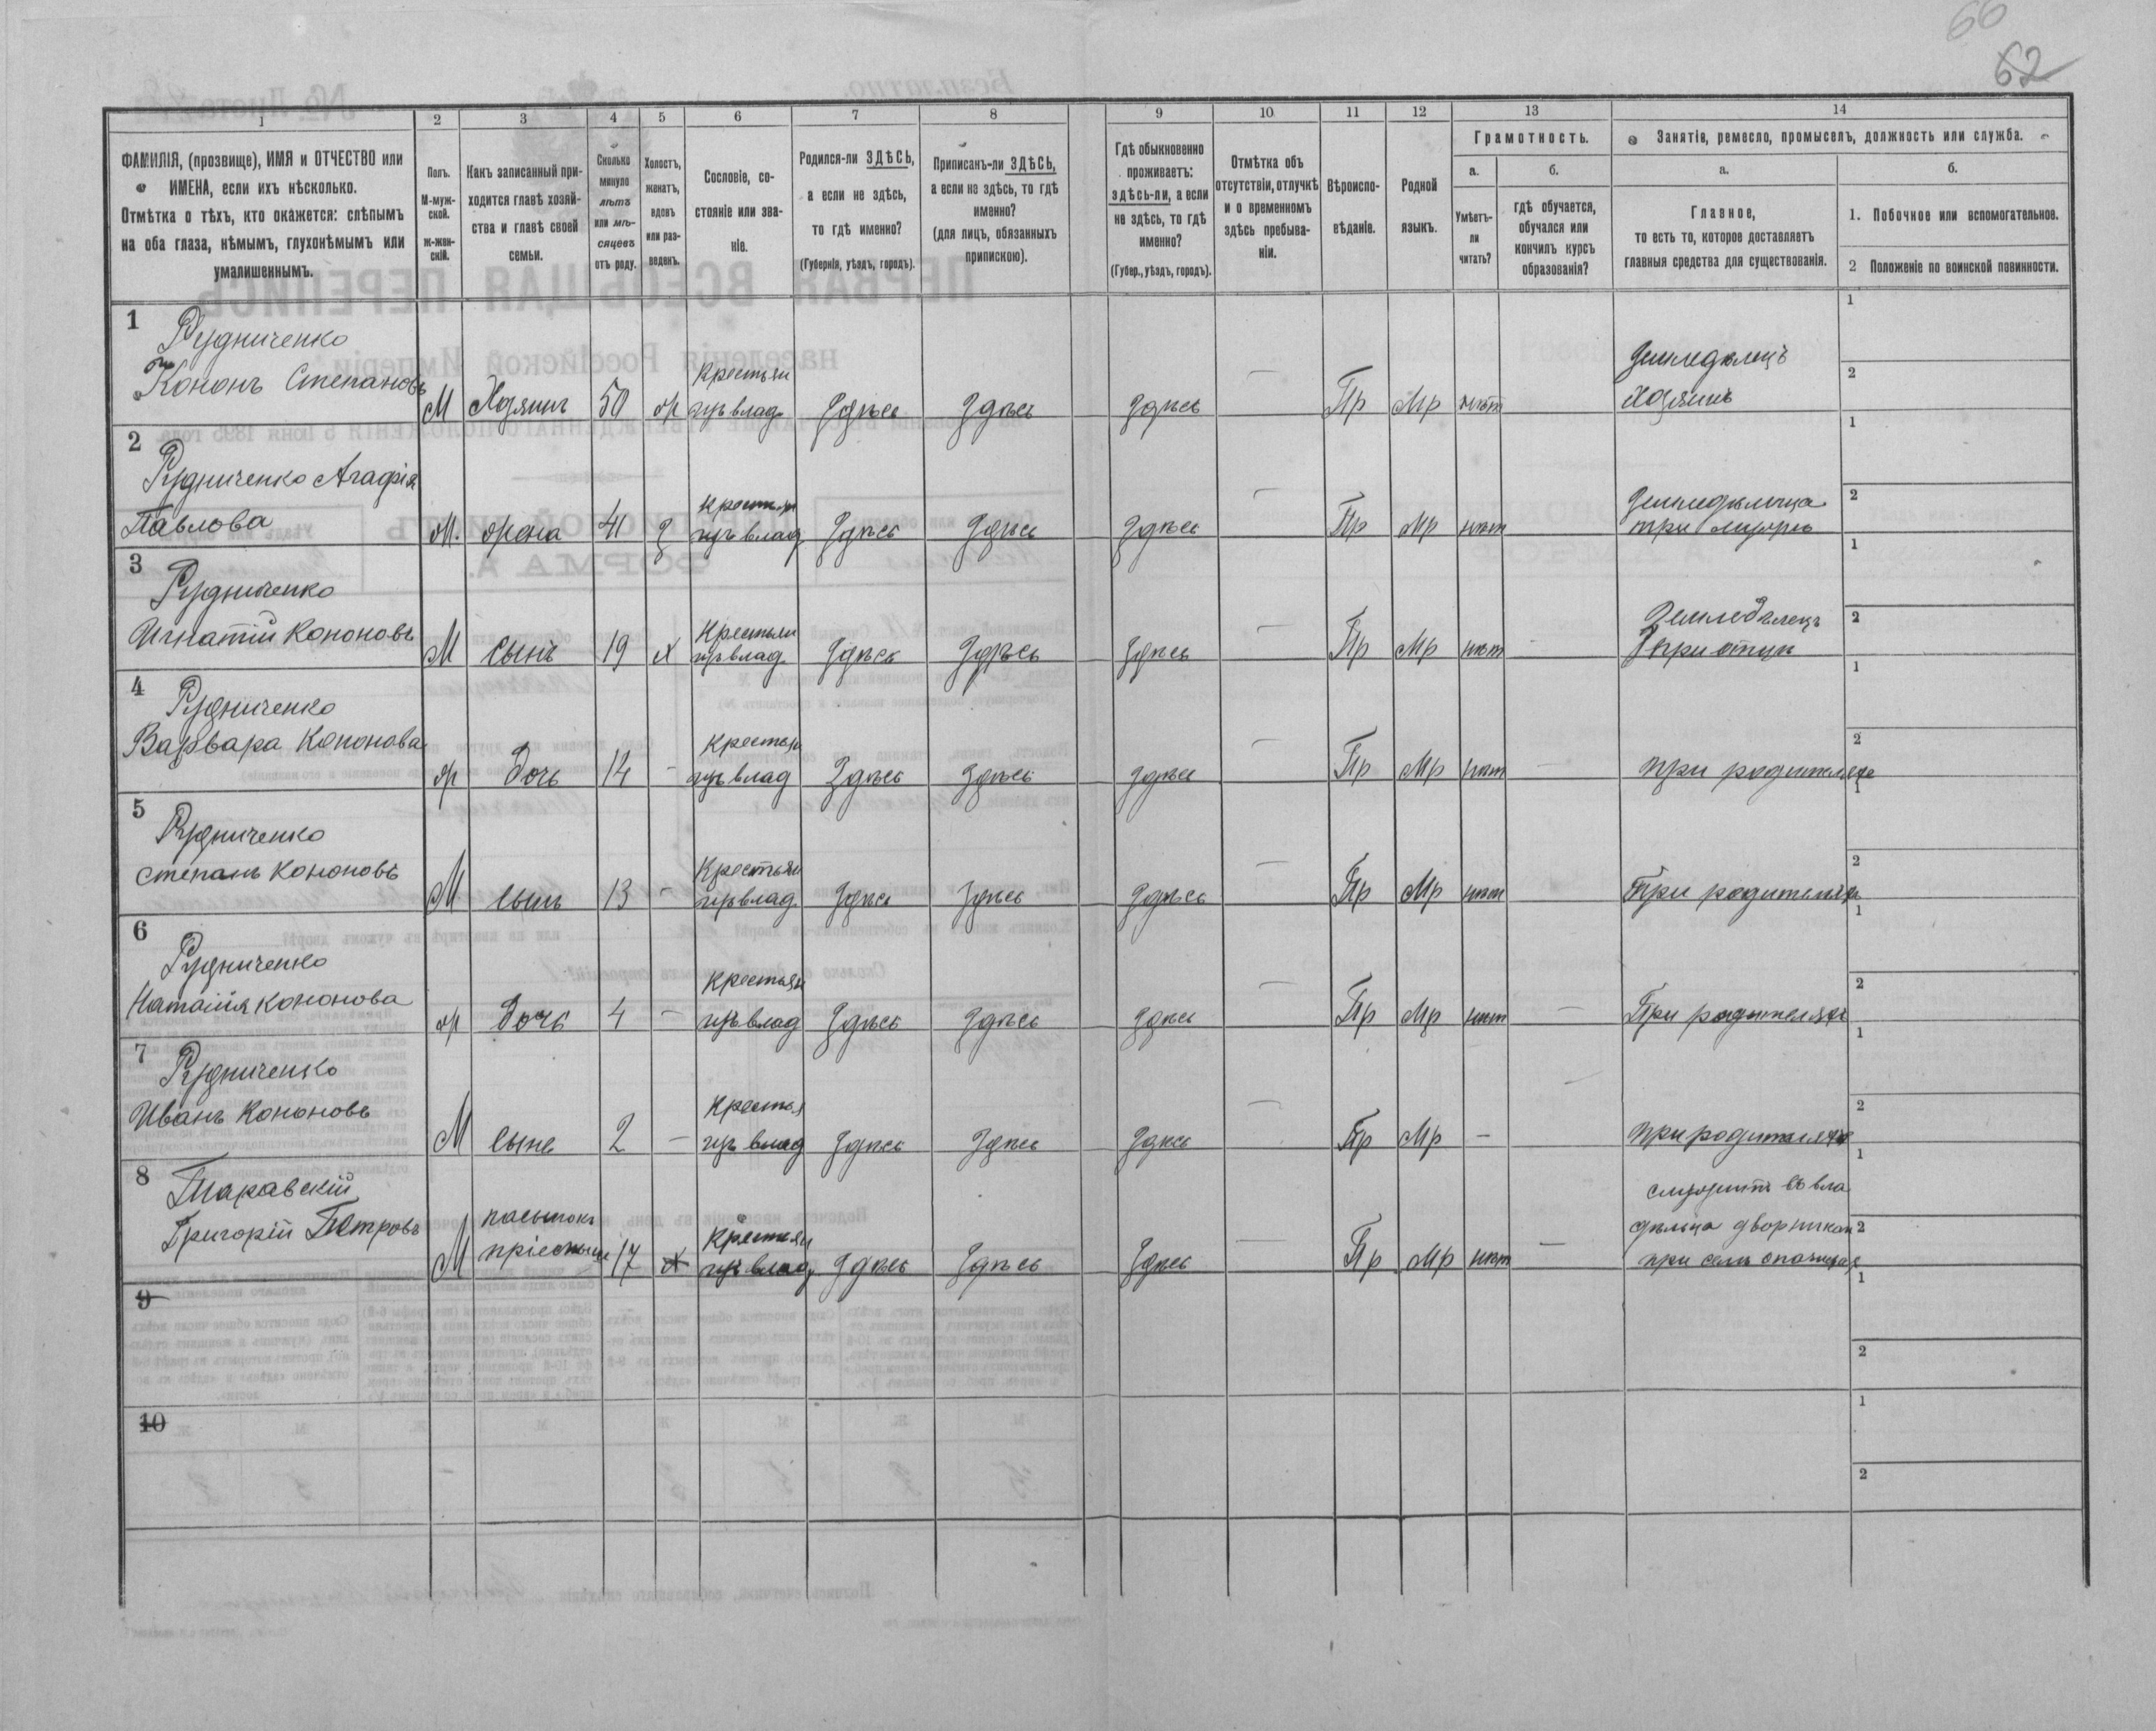 66
62
1
2
3
4
5
6
7
8
9
10
11
12
13
14
ФАМИЛІЯ, (прозвище), ИМЯ и ОТЧЕСТВО или
ИМЕНА, если ихъ нѣсколько.
Отмѣтка о тѣхъ, кто окажется: слѣпымъ
на оба глаза, нѣмымъ, глухонѣмымъ или
умалишеннымъ.
Полъ.
М-муж-
ской.
Ж-жен-
скій.
Какъ записанный при-
ходится главѣ хозяй-
ства и главѣ своей
семьи.
Сколько
минуло
лѣтъ
или мѣ-
сяцевъ
отъ роду.
Холостъ,
женатъ,
вдовъ
или раз-
веденъ.
Сословіе, со-
стояніе или зва-
ніе.
Родился-ли ЗДѢСЬ,
а если не здѣсь,
то гдѣ именно?
(Губернія, уѣздъ, городъ).
Приписанъ-ли ЗДѢСЬ,
а если не здѣсь, то гдѣ
именно?
(для лицъ, обязанныхъ
припискою).
Гдѣ обыкновенно
проживаетъ:
здѣсь-ли, а если
не здѣсь, то гдѣ
именно?
(Губер., уѣздъ, городъ).
Отмѣтка объ
отсутствіи, отлучкѣ
и о временномъ
здѣсь пребыва-
ніи.
Вѣроиспо-
вѣданіе.
Родной
языкъ.
Грамотность.
а.
Умѣетъ-
ли
читать?
б.
гдѣ обучается,
обучался или
кончилъ курсъ
образованія?
Занятіе, ремесло, промыселъ, должность или служба.
а.
Главное,
то есть то, которое доставляетъ
главныя средства для существованія.
б.
1. Побочное или вспомогательное.
2 Положеніе по воинской повинности.
1
Рудниченко
Кононъ Степановъ
М Хозяинъ 50 ж
Крестьян
изъ влад. Здѣсь Здѣсь Здѣсь — Пр Мр нѣт
Земледѣлецъ
Хозяинъ
1
2
2
Рудниченко Агафія
Павлова
жена 41 з
Крестьян
изъ влад Здѣсь Здѣсь Здѣсь — Пр Мр нѣт
Земледѣлица
при мужѣ
1
2
3
Рудниченко
Игнатій Кононовъ
М сынъ 19 х
Крестьян
изъ влад. Здѣсь Здѣсь Здѣсь — Пр Мр нѣт -
Земледѣлецъ
при отцѣ
1
2
4
Рудниченко
Варвара Кононова
ж дочь 14 -
Крестьян
изъ влад Здѣсь Здѣсь Здѣсь — Пр Мр нѣт —
при родителях
1
2
5
Рудниченко
Степанъ Кононовъ
М сынъ 13 -
Крестьян
изъ влад. Здѣсь Здѣсь Здѣсь — Пр Мр нѣт
При родителях
1
2
6
Рудниченко
Наталія Кононова
ж дочь 4 -
Крестьян
изъ влад Здѣсь Здѣсь Здѣсь — Пр Мр нѣт —
При родителях
1
2
7
Рудниченко
Иванъ Кононовъ
М сынъ 2 —
Крестья
изъ влад Здѣсь Здѣсь Здѣсь — Пр Мр - —
при родителях
1
2
8
Таравскій
Григорій Петровъ
М пасынокъ
17 х
Крестьян
изъ влад Здѣсь Здѣсь Здѣсь — Пр Мр нѣт —
служитъ въ вла
дѣльца дворникам
при селѣ
1
2
9
1
2
10
1
2